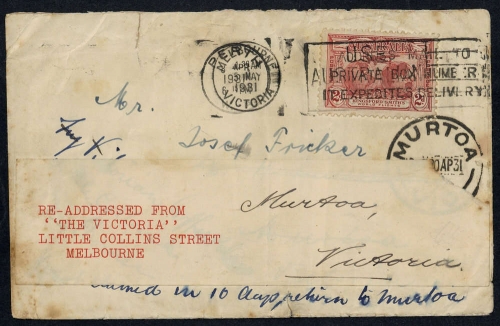 MELBOURNE
1931
VICTORIA
AUSTRALIA
KINGSFORD SMITH
2D
PRIVATE BOX NUMBER
IT EXPEDITES DELIVERY
MURTOA
AP31
Mr.
Josef Fricker
Murtoa,
Victoria.
RE-ADDRESSED FROM
''THE VICTORIA''
LITTLE COLLINS STREET
MELBOURNE
in 10 days, return to Murtoa